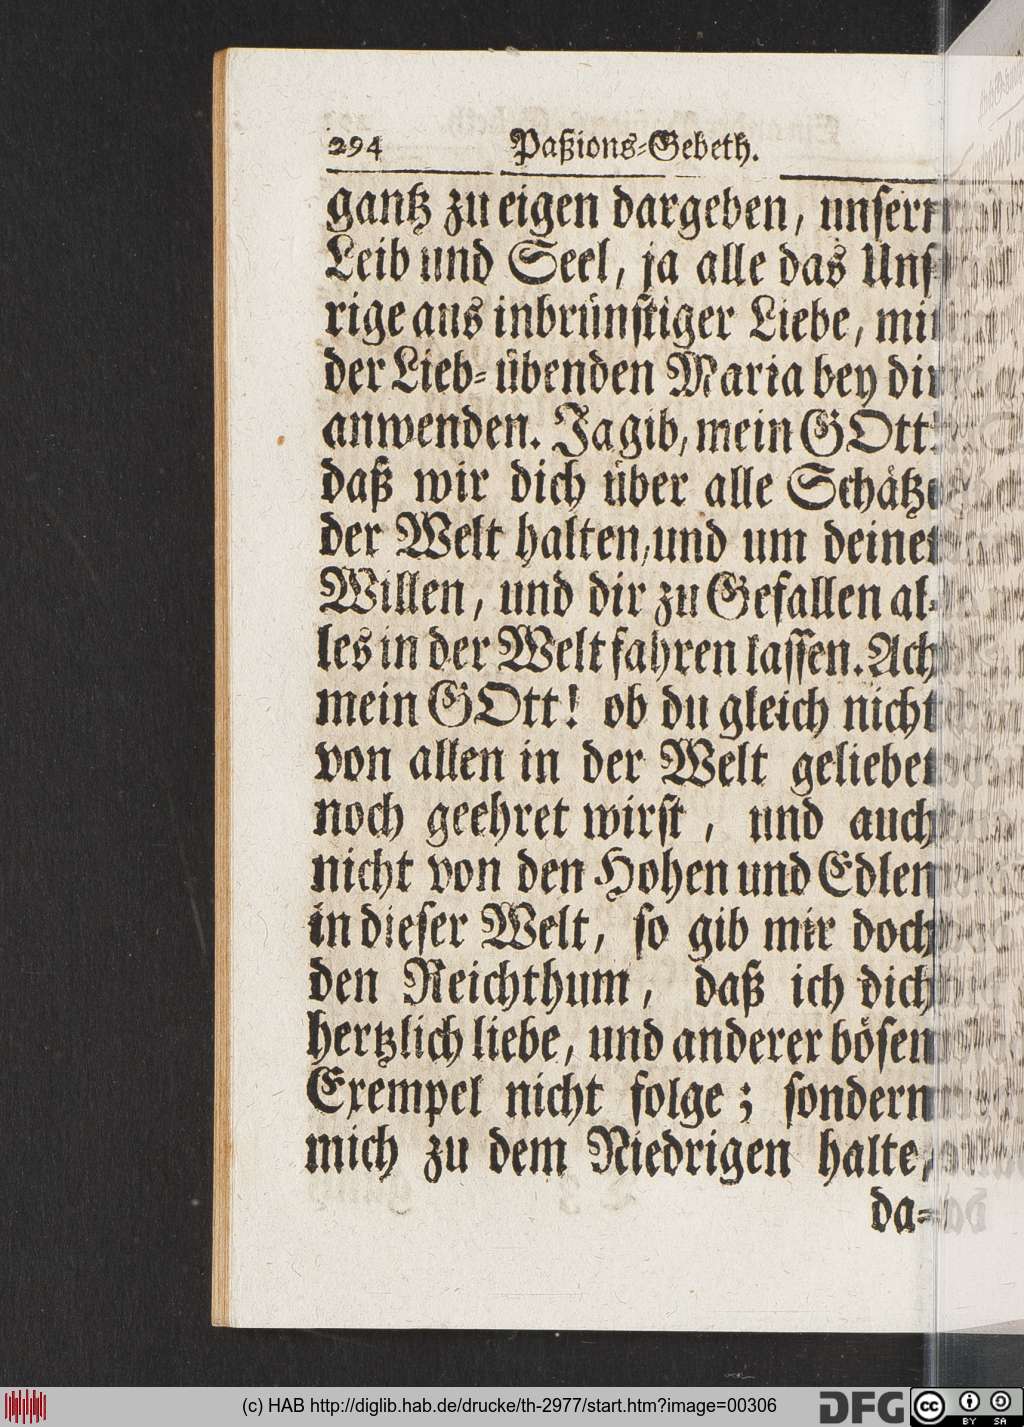 294 Paßions-Gebeth.
gantz zu eigen dargeben, unsern
Leib und Seel, ja alle das Uns-
rige aus inbrünstiger Liebe, mit
der Lieb-übenden Maria bey dir
anwenden. Ja gib, mein GOtt!
daß wir dich über alle Schätze
der Welt halten, und um deinet
Willen, und dir zu Gefallen al-
les in der Welt fahren lassen. Ach
mein GOtt! ob du gleich nicht
von allen in der Welt geliebet
noch geehret wirst, und auch
nicht von den Hohen und Edlen
in dieser Welt, so gib mir doch
den Reichthum, daß ich dich
hertzlich liebe, und anderer bösen
Exempel nicht folge; sondern
mich zu dem Niedrigen halte,
da-
(c) HAB http://diglib.hab.de/drucke/th-2977/start.htm?image=00306
DFG
cc BY SA